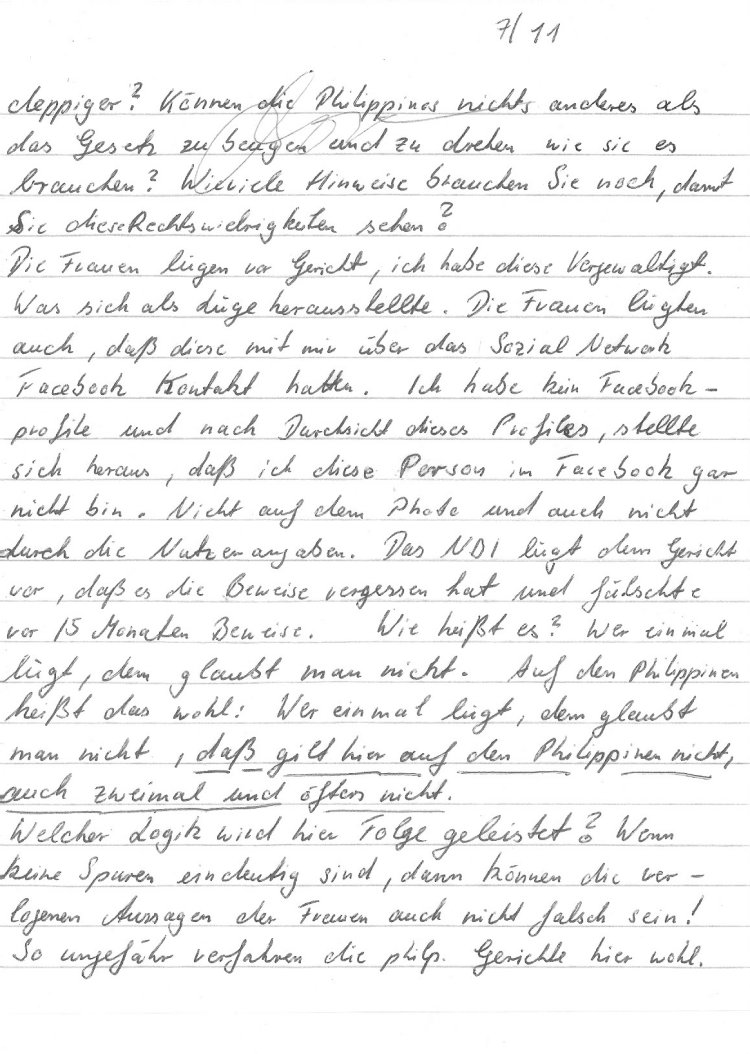 7/11
deppiger? Können die Philippinos nichts anderes als
das Gesetz zu beugen und zu drehen wie sie es
brauchen? Wieviele Hinweise brauchen Sie noch, damit
Sie diese Rechtswidrigkeiten sehen?
Die Frauen lügen vor Gericht, ich habe diese Vergewaltigt.
Was sich als Lüge herausstellte. Die Frauen lügten
auch, daß diese mit mir über das Sozial Network
Facebook Kontakt hatten. Ich habe kein Facebook-
profile und nach Durchsicht dieses Profiles, stellte
sich heraus, daß ich diese Person in Facebook gar
nicht bin. Nicht auf dem Photo und auch nicht
durch die Nutzerangaben. Das NBI lügt dem Gericht
vor, daß es die Beweise vergessen hat und fälschte
vor 15 Monaten Beweise. Wie heißt es? Wer einmal
lügt, dem glaubt man nicht. Auf den Philippinen
heißt das wohl: Wer einmal lügt, dem glaubt
man nicht, daß gilt hier auf den Philippinen nicht,
auch zweimal und öfters nicht.
Welcher Logik wird hier Folge geleistet? Wenn
keine Spuren eindeutig sind, dann können die ver-
logenen Aussagen der Frauen auch nicht falsch sein!
So ungefähr verfahren die philp. Gerichte hier wohl.